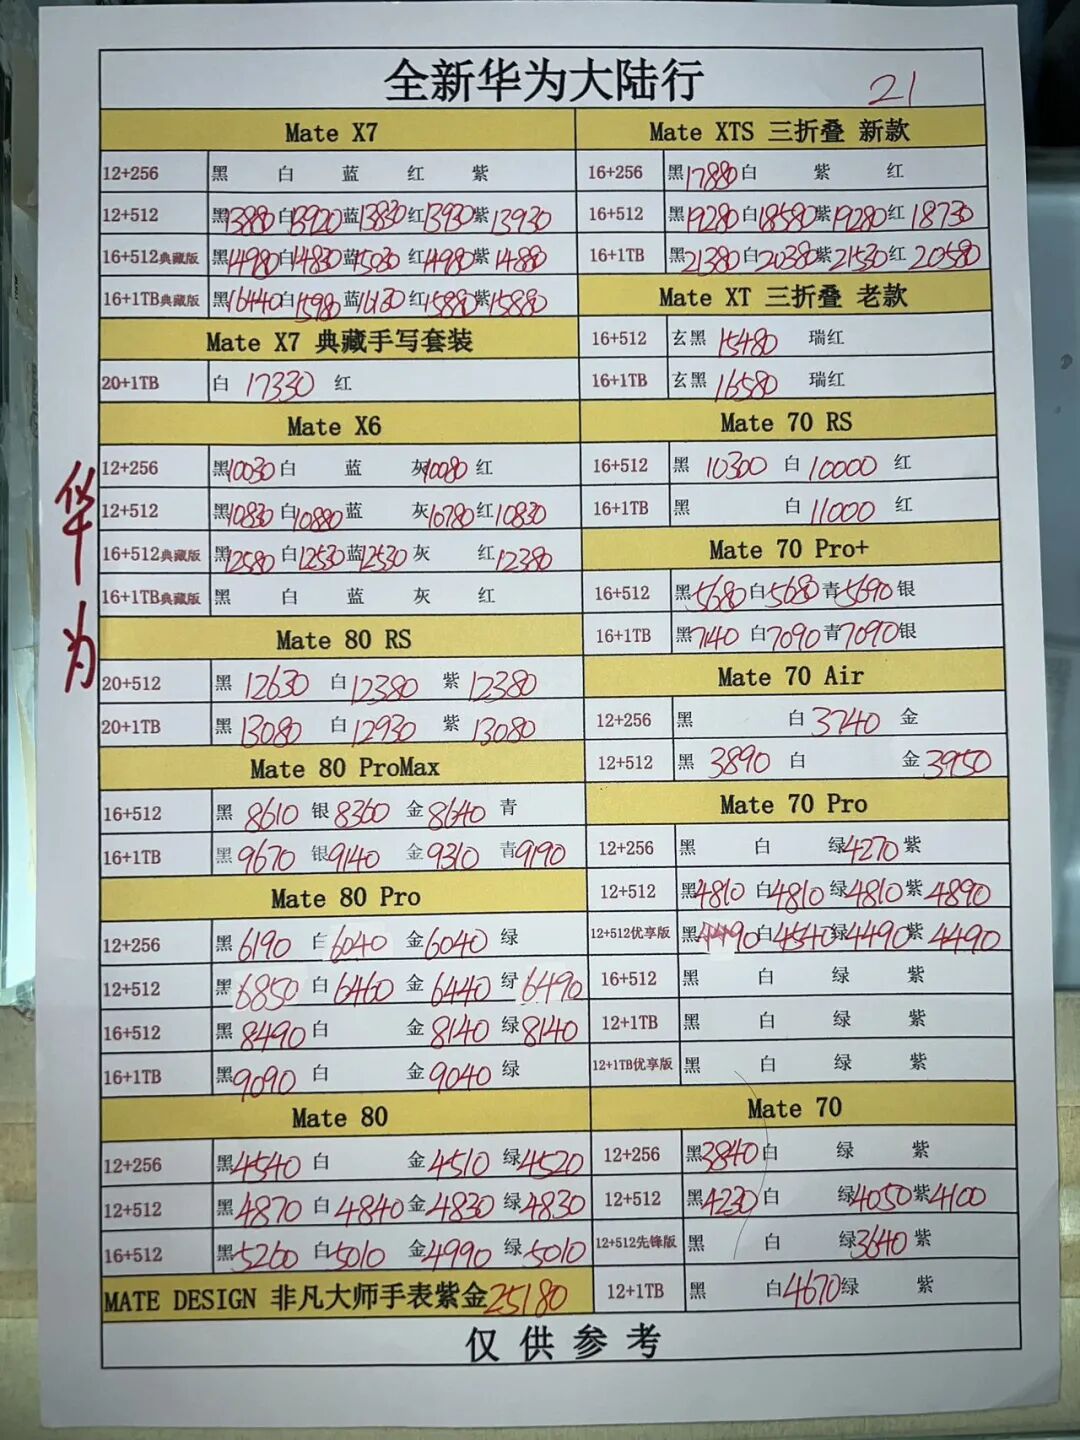 全新华为大陆行 21
华为
Mate X7
12+256 黑 白 蓝 红 紫
12+512 黑13880 白13920 蓝13830 红13930 紫13930
16+512典藏版 黑14980 白14830 蓝15030 红14980 紫14880
16+1TB典藏版 黑16440 白15980 蓝16130 红15880 紫15880
Mate X7 典藏手写套装
20+1TB 白 17330 红
Mate X6
12+256 黑10030 白 蓝 灰10080 红
12+512 黑10830 白10880 蓝 灰10780 红10830
16+512典藏版 黑12580 白12530 蓝12530 灰 红12380
16+1TB典藏版 黑 白 蓝 灰 红
Mate 80 RS
20+512 黑 12630 白12380 紫12380
20+1TB 黑 13080 白12930 紫13080
Mate 80 ProMax
16+512 黑 8610 银8360 金8640 青
16+1TB 黑 9670 银9140 金9310 青9190
Mate 80 Pro
12+256 黑6190 白6040 金6040 绿
12+512 黑6850 白6460 金6440 绿6490
16+512 黑8490 白 金8140 绿8140
16+1TB 黑9090 白 金9040 绿
Mate 80
12+256 黑4540 白 金4510 绿4520
12+512 黑4870 白4840 金4830 绿4830
16+512 黑5260 白5010 金4990 绿5010
MATE DESIGN 非凡大师手表紫金25180
Mate XTS 三折叠 新款
16+256 黑17880 白 紫 红
16+512 黑19280 白18580 紫19280 红18730
16+1TB 黑21380 白20380 紫21530 红20580
Mate XT 三折叠 老款
16+512 玄黑 15480 瑞红
16+1TB 玄黑 16580 瑞红
Mate 70 RS
16+512 黑 10300 白10000 红
16+1TB 黑 白11000 红
Mate 70 Pro+
16+512 黑5680 白5680 青5690 银
16+1TB 黑7140 白7090 青7090 银
Mate 70 Air
12+256 黑 白3740 金
12+512 黑 3890 白 金3950
Mate 70 Pro
12+256 黑 白 绿4270 紫
12+512 黑4810 白4810 绿4810 紫4890
12+512优享版 黑4490 白4540 绿4490 紫4490
16+512 黑 白 绿 紫
12+1TB 黑 白 绿 紫
12+1TB优享版 黑 白 绿 紫
Mate 70
12+256 黑3840 白 绿 紫
12+512 黑4230 白 绿4050 紫4100
12+512先锋版 黑 白 绿3640 紫
12+1TB 黑 白4670 绿 紫
仅供参考